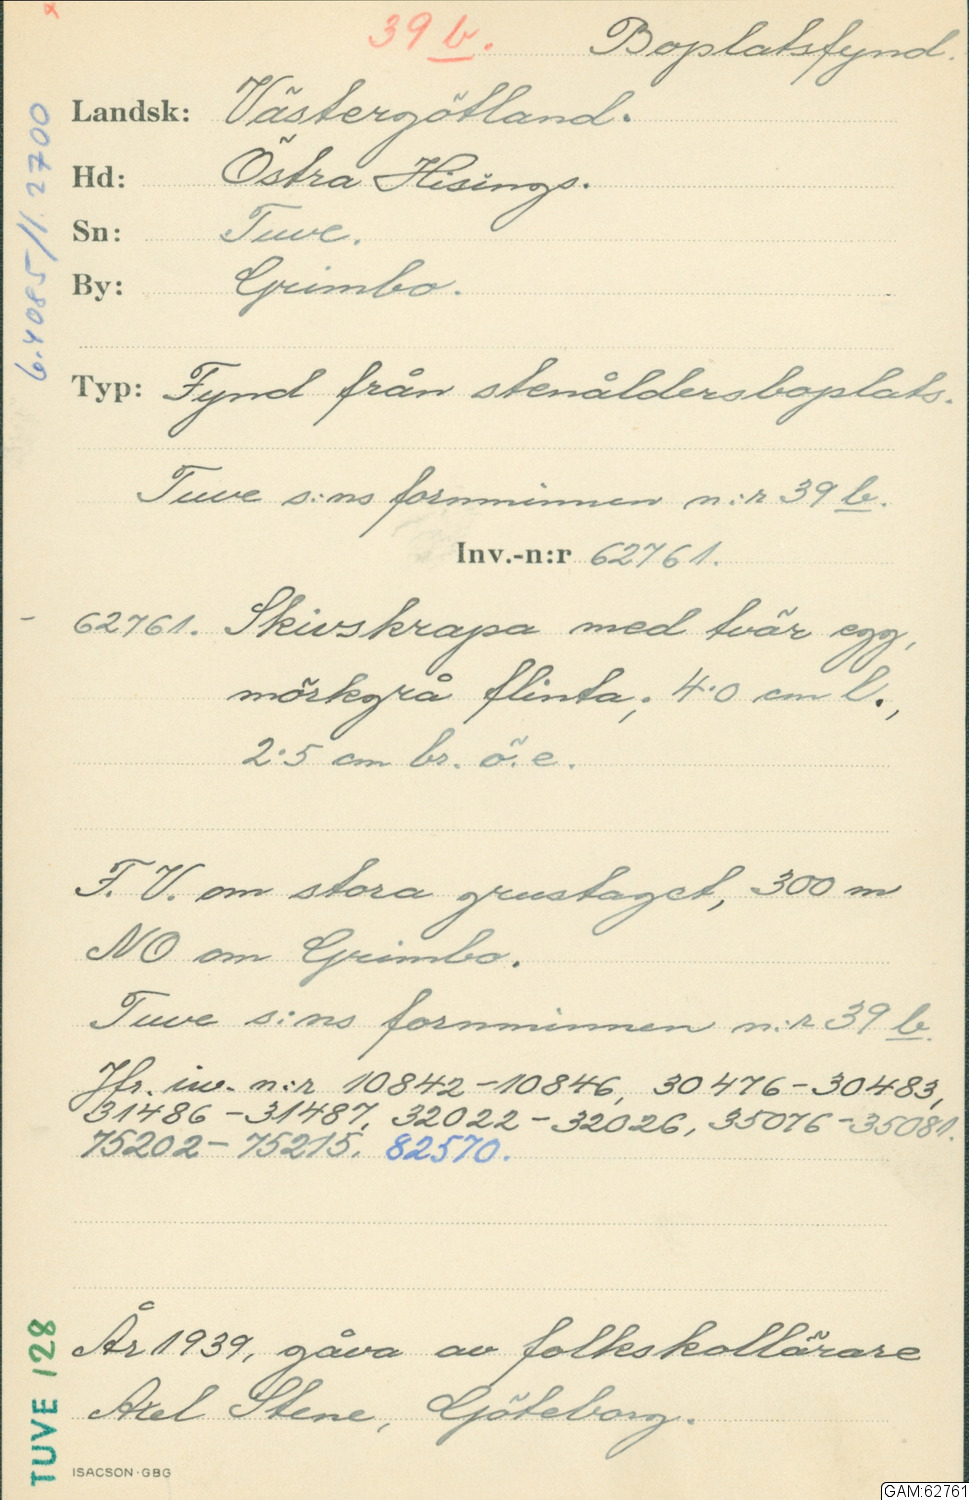 39 b. Boplatsfynd.
Landsk: Västergötland.
Hd: Östra Hisings.
Sn: Tuve.
By: Grimbo.
Typ: Fynd från stenåldersboplats.
Tuve s:ns fornminnen n:r 39 b.
Inv.-n:r 62761.
62761. Skivskrapa med tvär egg,
mörkgrå flinta; 4·0 cm l.,
2·5 cm br. ö. e.
F. V. om stora grustaget, 300 m
NO om Grimbo.
Tuve s:ns fornminnen n:r 39 b.
Jfr. inv. n:r 10842-10846, 30476-30483,
31486-31487, 32022-32026, 35076-35081.
75202-75215. 82570.
År 1939, gåva av folkskollärare
Axel Stene, Göteborg.
ISACSON·GBG
6.4085/11.2700
TUVE 128
GAM:62761